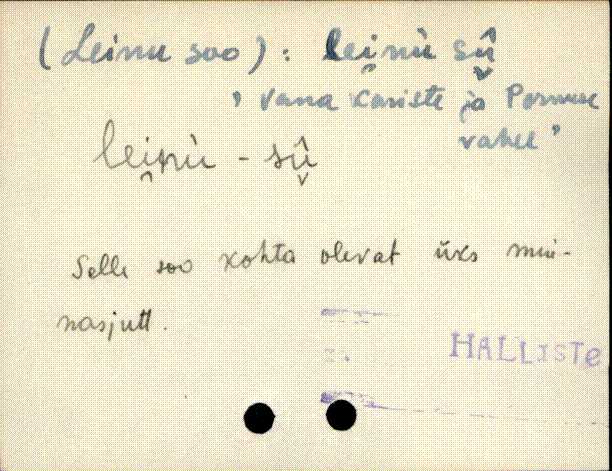 (Leinu soo): lei̯nù sû̬
, vana Kariste ja Pornuse
vahel"
lei̯nù - sû̬
Selle soo kohta olevat üks mui-
nasjutt.
HALLISTE